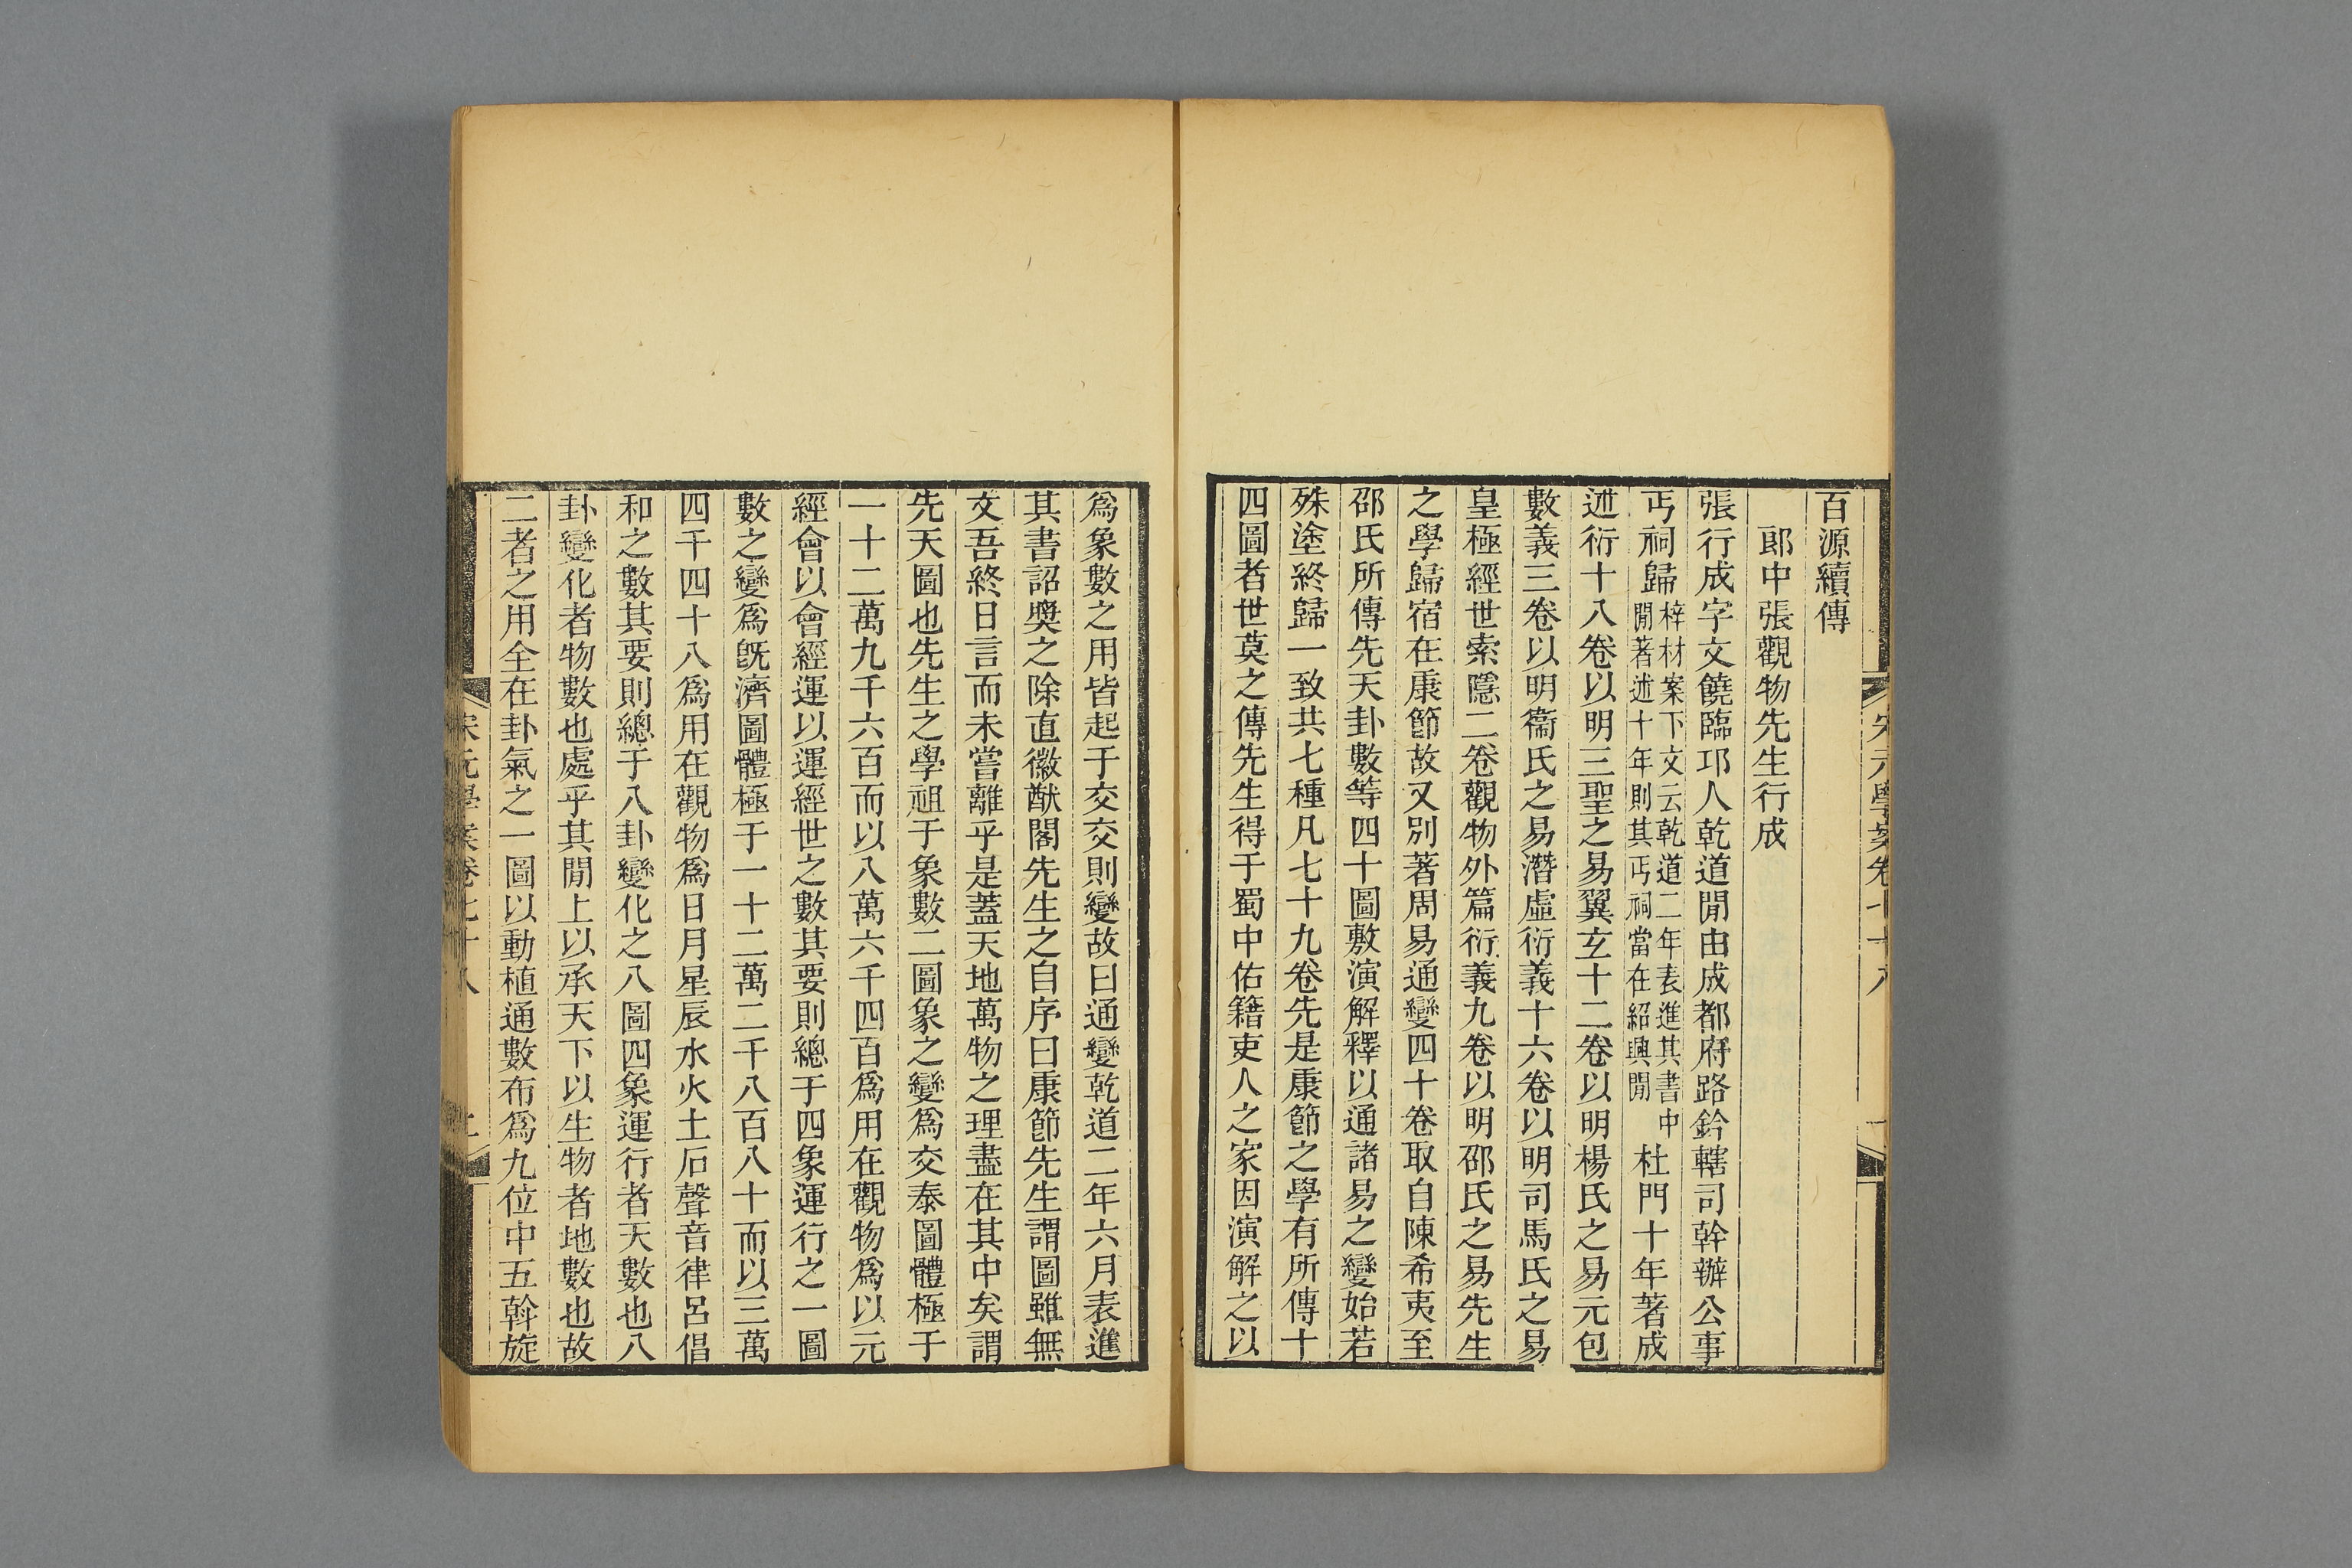 百源續傳
郎中張觀物先生行成
張行成字文饒臨邛人乾道閒由成都府路鈐轄司幹辦公事
丐祠歸梓材案下文云乾道二年表進其書中閒著述十年則其丐祠當在紹興閒杜門十年著成
述衍十八卷以明三聖之易翼玄十二卷以明楊氏之易元包
數義三卷以明衞氏之易潛虛衍義十六卷以明司馬氏之易
皇極經世索隱二卷觀物外篇衍義九卷以明邵氏之易先生
之學歸宿在康節故又別著周易通變四十卷取自陳希夷至
邵氏所傳先天卦數等四十圖敷演解釋以通諸易之變始若
殊塗終歸一致共七種凡七十九卷先是康節之學有所傳十
四圖者世莫之傳先生得于蜀中佑籍吏人之家因演解之以
爲象數之用皆起于交交則變故曰通變乾道二年六月表進
其書詔奬之除直徽猷閣先生之自序曰康節先生謂圖雖無
文吾終日言而未嘗離乎是蓋天地萬物之理盡在其中矣謂
先天圖也先生之學祖于象數二圖象之變爲交泰圖體極于
一十二萬九千六百而以八萬六千四百爲用在觀物爲以元
經會以會經運以運經世之數其要則總于四象運行之一圖
數之變爲旣濟圖體極于一十二萬二千八百八十而以三萬
四千四十八爲用在觀物爲日月星辰水火土石聲音律呂倡
和之數其要則總于八卦變化之八圖四象運行者天數也八
卦變化者物數也處乎其閒上以承天下以生物者地數也故
二者之用全在卦氣之一圖以動植通數布爲九位中五斡旋
宋元學案卷七十八